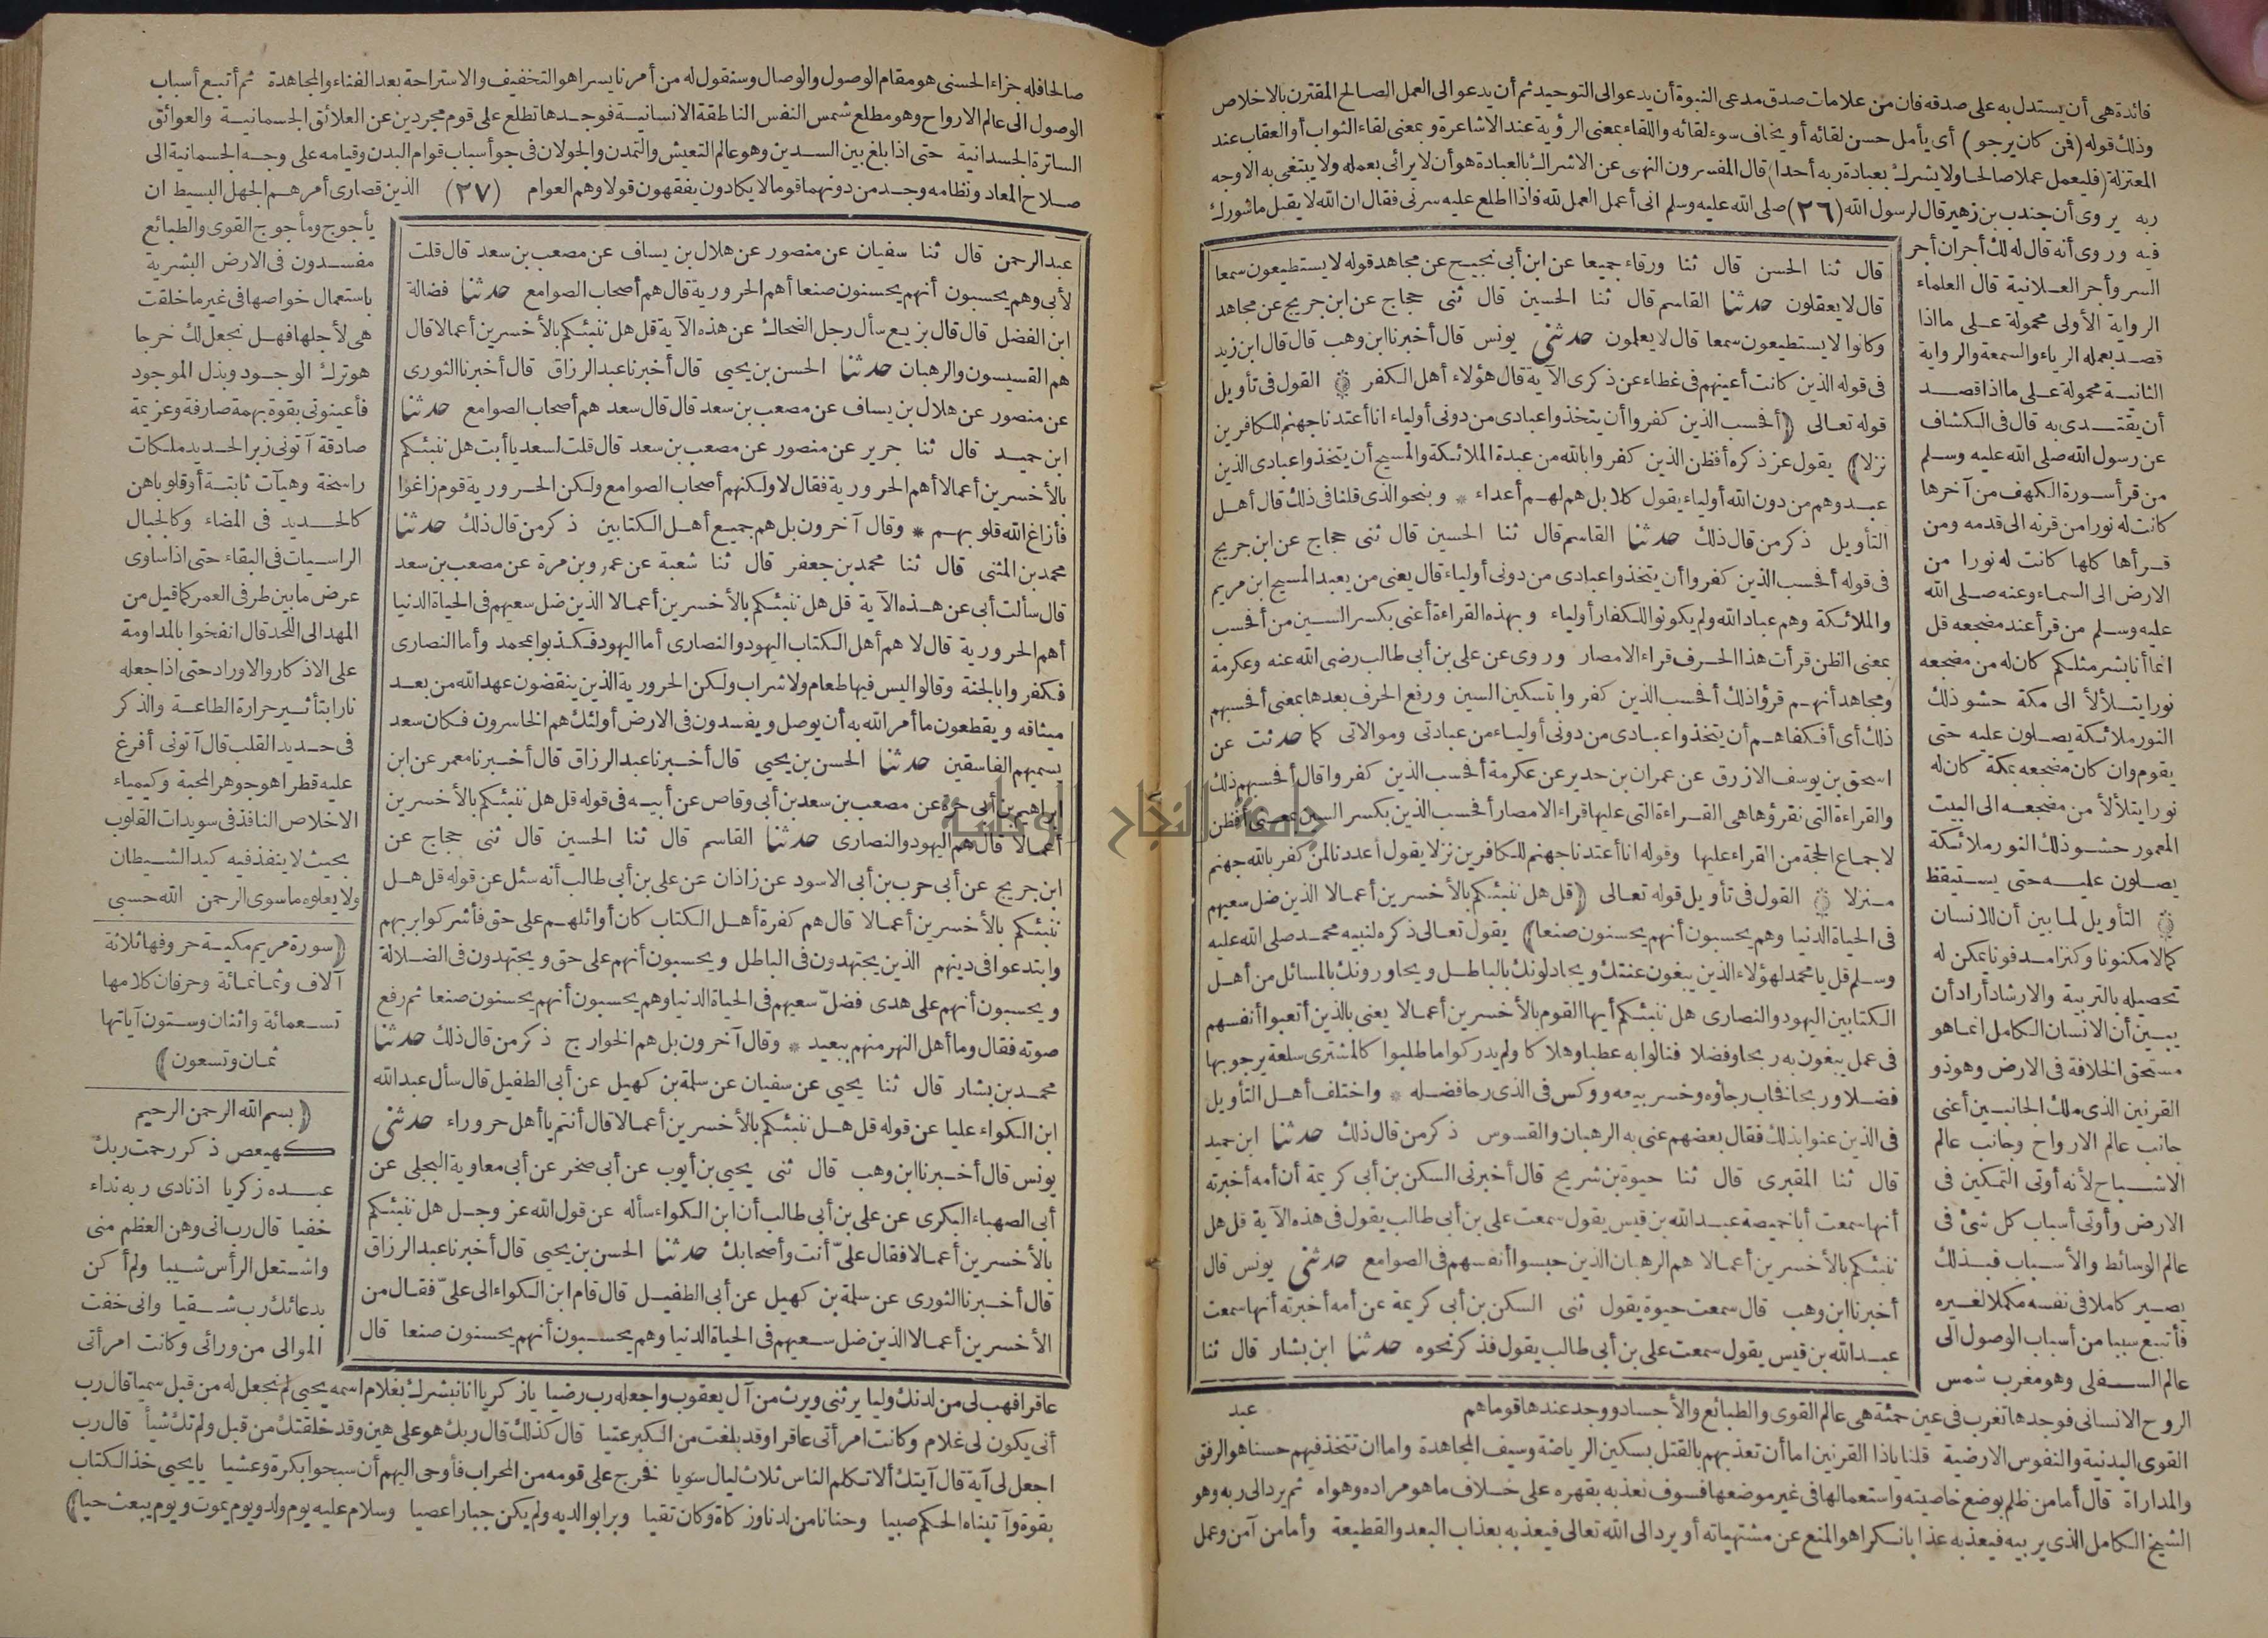 فائدة هى أن يستدل به على صدقه فان من علامات صدق مدعى النبوة أن يدعو الى التوحيد ثم أن يدعو الى العمل الصالح المقترن بالاخلاص
وذلك قوله (فمن كان يرجو) أى يأمل حسن لقائه أو يخاف سوء لقائه واللقاء بمعنى الرؤية عند الاشاعرة وبمعنى لقاء الثواب أو العقاب عند
المعتزلة (فليعمل عملا صالحا ولا يشرك بعبادة ربه أحدا) قال المفسرون النهى عن الاشراك بالعبادة هو أن لا يرائى بعمله ولا يبتغى به الا وجه
ربه يروى أن جندب بن زهير قال لرسول الله (٢٦) صلى الله عليه وسلم انى أعمل العمل لله فاذا اطلع عليه سرنى فقال ان الله لا يقبل ما شورك
فيه وروى أنه قال له لك أجران أجر
السر وأجر العلانية قال العلماء
الرواية الأولى محمولة على ما اذا
قصد بعمله الرياء والسمعة والرواية
الثانية محمولة على ما اذا قصد
أن يقتدى به قال فى الكشاف
عن رسول الله صلى الله عليه وسلم
من قرأ سورة الكهف من آخرها
كانت له نورا من قرنه الى قدمه ومن
قرأها كلها كانت له نورا من
الارض الى السماء وعنه صلى الله
عليه وسلم من قرأ عند مضجعه قل
انما أنا بشر مثلكم كان له من مضجعه
نورا يتلألأ الى مكة حشو ذلك
النور ملائكة يصلون عليه حتى
يقوم وان كان مضجعه بمكة كان له
نورا يتلألأ من مضجعه الى البيت
المعمور حشو ذلك النور ملائكة
يصلون عليه حتى يستيقظ
۞ التأويل لما بين أن للانسان
كمالا مكنونا وكنزا مدفونا يمكن له
تحصيله بالتربية والارشاد أراد أن
يبين أن الانسان الكامل انما هو
مستحق الخلافة فى الارض وهو ذو
القرنين الذى ملك الجانبين أعنى
جانب عالم الارواح وجانب عالم
الاشباح لأنه أوتى التمكين فى
الارض وأوتى أسباب كل شئ فى
عالم الوسائط والأسباب فبذلك
يصير كاملا فى نفسه مكملا لغيره
فأتبع سببا من أسباب الوصول الى
عالم السفلى وهو مغرب شمس
قال ثنا الحسن قال ثنا ورقاء جميعا عن ابن أبى نجيح عن مجاهد قوله لا يستطيعون سمعا
قال لا يعقلون حدثنا القاسم قال ثنا الحسين قال ثنى حجاج عن ابن جريج عن مجاهد
وكانوا لا يستطيعون سمعا قال لا يعلمون حدثنى يونس قال أخبرنا ابن وهب قال قال ابن زيد
فى قوله الذين كانت أعينهم فى غطاء عن ذكرى الآية قال هؤلاء أهل الكفر ۞ القول فى تأويل
قوله تعالى (أفحسب الذين كفروا أن يتخذوا عبادى من دونى أولياء انا أعتدنا جهنم للكافرين
نزلا) يقول عز ذكره أفظن الذين كفروا بالله من عبدة الملائكة والمسيح أن يتخذوا عبادى الذين
عبدوهم من دون الله أولياء يقول كلا بل هم لهم أعداء * وبنحو الذى قلنا فى ذلك قال أهل
التأويل ذكر من قال ذلك حدثنا القاسم قال ثنا الحسين قال ثنى حجاج عن ابن جريج
فى قوله أفحسب الذين كفروا أن يتخذوا عبادى من دونى أولياء قال يعنى من يعبد المسيح ابن مريم
والملائكة وهم عباد الله ولم يكونوا للكفار أولياء وبهذه القراءة أعنى بكسر السين من أفحسب
بمعنى الظن قرأت هذا الحرف قراء الامصار وروى عن على بن أبى طالب رضى الله عنه وعكرمة
ومجاهد أنهم قرؤا ذلك أفحسب الذين كفروا بتسكين السين ورفع الحرف بعدها بمعنى أفحسبهم
ذلك أى أفكفاهم أن يتخذوا عبادى من دونى أولياء من عبادتى وموالاتى كما حدثت عن
اسحق بن يوسف الازرق عن عمران بن حدير عن عكرمة أفحسب الذين كفروا قال أفحسبهم ذلك
والقراءة التى نقرؤها هى القراءة التى عليها قراء الامصار أفحسب الذين بكسر السين بمعنى أفظن
لاجماع الحجة من القراء عليها وقوله انا أعتدنا جهنم للكافرين نزلا يقول أعددنا لمن كفر بالله جهنم
منزلا ۞ القول فى تأويل قوله تعالى (قل هل ننبئكم بالأخسرين أعمالا الذين ضل سعيهم
فى الحياة الدنيا وهم يحسبون أنهم يحسنون صنعا) يقول تعالى ذكره لنبيه محمد صلى الله عليه
وسلم قل يا محمد لهؤلاء الذين يبغون عنتك ويجادلونك بالباطل ويحاورونك بالمسائل من أهل
الكتابين اليهود والنصارى هل ننبئكم أيها القوم بالأخسرين أعمالا يعنى بالذين أتعبوا أنفسهم
فى عمل يبغون به ربحا وفضلا فنالوا به عطبا وهلاكا ولم يدركوا ما طلبوا كالمشترى سلعة يرجو بها
فضلا وربحا فخاب رجاؤه وخسر بيعه ووكس فى الذى رجا فضله * واختلف أهل التأويل
فى الذين عنوا بذلك فقال بعضهم عنى به الرهبان والقسوس ذكر من قال ذلك حدثنا ابن حميد
قال ثنا المقبرى قال ثنا حيوة بن شريح قال أخبرنى السكن بن أبى كريمة أن أمه أخبرته
أنها سمعت أبا خميصة عبد الله بن قيس يقول سمعت على بن أبى طالب يقول فى هذه الآية قل هل
ننبئكم بالأخسرين أعمالا هم الرهبان الذين حبسوا أنفسهم فى الصوامع حدثنى يونس قال
أخبرنا ابن وهب قال سمعت حيوة يقول ثنى السكن بن أبى كريمة عن أمه أخبرته أنها سمعت
عبد الله بن قيس يقول سمعت على بن أبى طالب يقول فذكر نحوه حدثنا ابن بشار قال ثنا
عبد
الروح الانسانى فوجدها تغرب فى عين حمئة هى عالم القوى والطبائع والأجساد ووجد عندها قوما هم
القوى البدنية والنفوس الارضية قلنا ياذا القرنين اما أن تعذبهم بالقتل بسكين الرياضة وسيف المجاهدة واما ان تتخذ فيهم حسنا هو الرفق
والمداراة قال أما من ظلم بوضع خاصيته واستعمالها فى غير موضعها فسوف نعذبه بقهره على خلاف ما هو مراده وهواه ثم يرد الى ربه وهو
الشيخ الكامل الذى يربيه فيعذبه عذابا نكرا هو المنع عن مشتهياته أو يرد الى الله تعالى فيعذبه بعذاب البعد والقطيعة وأما من آمن وعمل
صالحا فله جزاء الحسنى هو مقام الوصول والوصال وسنقول له من أمرنا يسرا هو التخفيف والاستراحة بعد الفناء والمجاهدة ثم أتبع أسباب
الوصول الى عالم الارواح وهو مطلع شمس النفس الناطقة الانسانية فوجدها تطلع على قوم مجردين عن العلائق الجسمانية والعوائق
الساترة الجسدانية حتى اذا بلغ بين السدين وهو عالم التعيش والتمدن والجولان فى جو أسباب قوام البدن وقيامه على وجه الجسمانية الى
صلاح المعاد ونظامه وجد من دونهما قوما لا يكادون يفقهون قولا وهم العوام (٢٧) الذين قصارى أمرهم الجهل البسيط ان
يأجوج ومأجوج القوى والطبائع
مفسدون فى الارض البشرية
باستعمال خواصها فى غير ما خلقت
هى لأجلها فهل نجعل لك خرجا
هو ترك الوجود وبذل الموجود
فأعينونى بقوة بهمة صارفة وعزيمة
صادقة آتونى زبر الحديد ملكات
راسخة وهيآت ثابتة أو قلوبا هن
كالحديد فى المضاء وكالجبال
الراسيات فى البقاء حتى اذا ساوى
عرض ما بين طرفى العمر كما قيل من
المهد الى اللحد قال انفخوا بالمداومة
على الاذكار والاوراد حتى اذا جعله
نارا بتأثير حرارة الطاعة والذكر
فى حديد القلب قال آتونى أفرغ
عليه قطرا هو جوهر المحبة وكيمياء
الاخلاص النافذ فى سويدات القلوب
بحيث لا ينفذ فيه كيد الشيطان
ولا يعلوه ما سوى الرحمن الله حسبى
(سورة مريم مكية حروفها ثلاثة
آلاف وثمانمائة وحرفان كلامها
تسعمائة واثنان وستون آياتها
ثمان وتسعون)
(بسم الله الرحمن الرحيم
كهيعص ذكر رحمت ربك
عبده زكريا اذ نادى ربه نداء
خفيا قال رب انى وهن العظم منى
واشتعل الرأس شيبا ولم أكن
بدعائك رب شقيا وانى خفت
الموالى من ورائى وكانت امرأتى
عبد الرحمن قال ثنا سفيان عن منصور عن هلال بن يساف عن مصعب بن سعد قال قلت
لأبى وهم يحسبون أنهم يحسنون صنعا أهم الحرورية قال هم أصحاب الصوامع حدثنا فضالة
ابن الفضل قال قال بزيع سأل رجل الضحاك عن هذه الآية قل هل ننبئكم بالأخسرين أعمالا قال
هم القسيسون والرهبان حدثنا الحسن بن يحيى قال أخبرنا عبد الرزاق قال أخبرنا الثورى
عن منصور عن هلال بن يساف عن مصعب بن سعد قال قال سعد هم أصحاب الصوامع حدثنا
ابن حميد قال ثنا جرير عن منصور عن مصعب بن سعد قال قلت لسعد يا أبت هل ننبئكم
بالأخسرين أعمالا أهم الحرورية فقال لا ولكنهم أصحاب الصوامع ولكن الحرورية قوم زاغوا
فأزاغ الله قلوبهم * وقال آخرون بل هم جميع أهل الكتابين ذكر من قال ذلك حدثنا
محمد بن المثنى قال ثنا محمد بن جعفر قال ثنا شعبة عن عمرو بن مرة عن مصعب بن سعد
قال سألت أبى عن هذه الآية قل هل ننبئكم بالأخسرين أعمالا الذين ضل سعيهم فى الحياة الدنيا
أهم الحرورية قال لا هم أهل الكتاب اليهود والنصارى أما اليهود فكذبوا بمحمد وأما النصارى
فكفروا بالجنة وقالوا ليس فيها طعام ولا شراب ولكن الحرورية الذين ينقضون عهد الله من بعد
ميثاقه ويقطعون ما أمر الله به أن يوصل ويفسدون فى الارض أولئك هم الخاسرون فكان سعد
يسميهم الفاسقين حدثنا الحسن بن يحيى قال أخبرنا عبد الرزاق قال أخبرنا معمر عن ابن
ابراهيم بن أبى حرة عن مصعب بن سعد بن أبى وقاص عن أبيه فى قوله قل هل ننبئكم بالأخسرين
أعمالا قال هم اليهود والنصارى حدثنا القاسم قال ثنا الحسين قال ثنى حجاج عن
ابن جريج عن أبى حرب بن أبى الاسود عن زاذان عن على بن أبى طالب أنه سئل عن قوله قل هل
ننبئكم بالأخسرين أعمالا قال هم كفرة أهل الكتاب كان أوائلهم على حق فأشركوا بربهم
وابتدعوا فى دينهم الذين يجتهدون فى الباطل ويحسبون أنهم على حق ويجتهدون فى الضلالة
ويحسبون أنهم على هدى فضلّ سعيهم فى الحياة الدنيا وهم يحسبون أنهم يحسنون صنعا ثم رفع
صوته فقال وما أهل النهر منهم ببعيد * وقال آخرون بل هم الخوارج ذكر من قال ذلك حدثنا
محمد بن بشار قال ثنا يحيى عن سفيان عن سلمة بن كهيل عن أبى الطفيل قال سأل عبد الله
ابن الكواء عليا عن قوله قل هل ننبئكم بالأخسرين أعمالا قال أنتم يا أهل حروراء حدثنى
يونس قال أخبرنا ابن وهب قال ثنى يحيى بن أيوب عن أبى صخر عن أبى معاوية البجلى عن
أبى الصهباء البكرى عن على بن أبى طالب أن ابن الكواء سأله عن قول الله عز وجل هل ننبئكم
بالأخسرين أعمالا فقال علىّ أنت وأصحابك حدثنا الحسن بن يحيى قال أخبرنا عبد الرزاق
قال أخبرنا الثورى عن سلمة بن كهيل عن أبى الطفيل قال قام ابن الكواء الى علىّ فقال من
الأخسرين أعمالا الذين ضل سعيهم فى الحياة الدنيا وهم يحسبون أنهم يحسنون صنعا قال
عاقرا فهب لى من لدنك وليا يرثنى ويرث من آل يعقوب واجعله رب رضيا يا زكريا انا نبشرك بغلام اسمه يحيى لم نجعل له من قبل سميا قال رب
أنى يكون لى غلام وكانت امرأتى عاقرا وقد بلغت من الكبر عتيا قال كذلك قال ربك هو على هين وقد خلقتك من قبل ولم تك شيأ قال رب
اجعل لى آية قال آيتك ألا تكلم الناس ثلاث ليال سويا فخرج على قومه من المحراب فأوحى اليهم أن سبحوا بكرة وعشيا يا يحيى خذ الكتاب
بقوة وآتيناه الحكم صبيا وحنانا من لدنا وزكاة وكان تقيا وبرا بوالديه ولم يكن جبارا عصيا وسلام عليه يوم ولد ويوم يموت ويوم يبعث حيا)
جامعة النجاح الوطنية